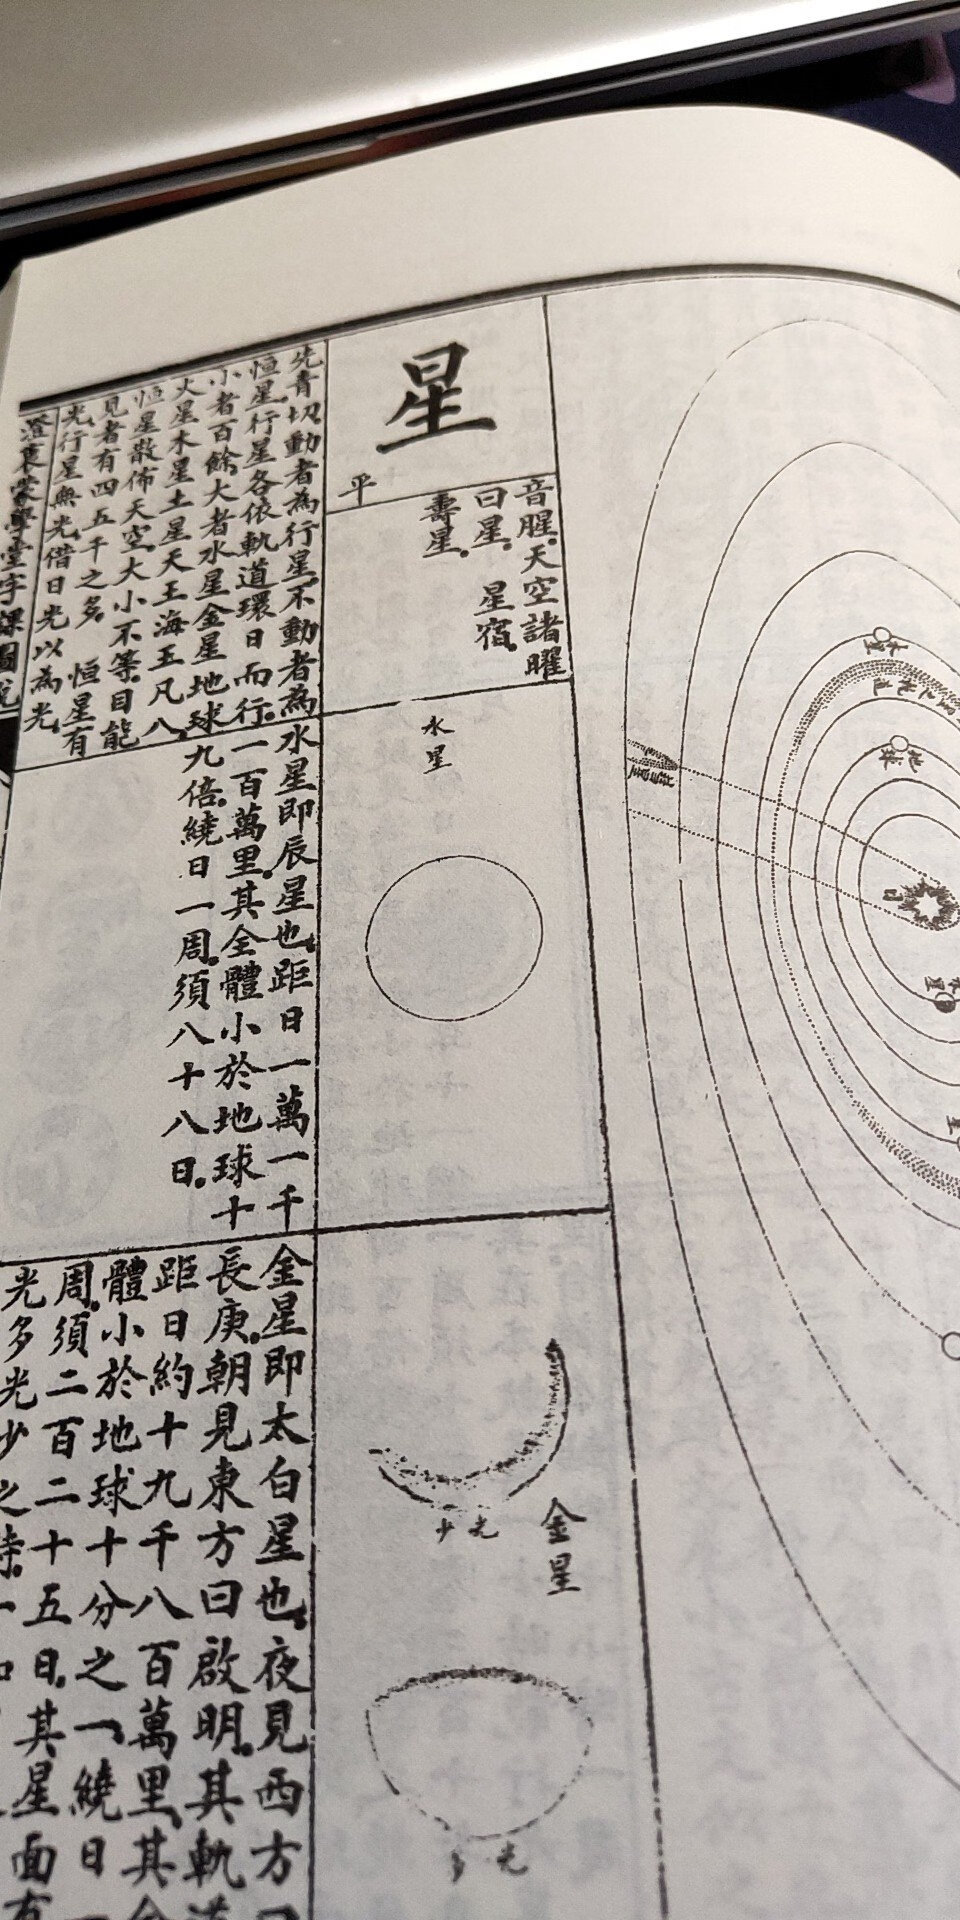 星
平
音腥。天空諸曜
曰星。 星宿。
壽星。
先青切。動者為行星。不動者為
恒星。行星各依軌道環日而行。
小者百餘。大者水星金星地球
火星木星土星天王海王凡八。
恒星散佈天空。大小不等。目能
見者有四五千之多。 恒星有
光。行星無光。借日光以為光。
澄衷蒙學堂字課圖說
水星
水星即辰星也。距日一萬一千
一百萬里。其全體小於地球十
九倍。繞日一周。須八十八日。
金星
光少
光多
金星即太白星也。夜見西方曰
長庚。朝見東方曰啟明。其軌道
距日約十九千八百萬里。其全
體小於地球十分之一。繞日一
周。須二百二十五日。其星面有
光多光少之
地球
日